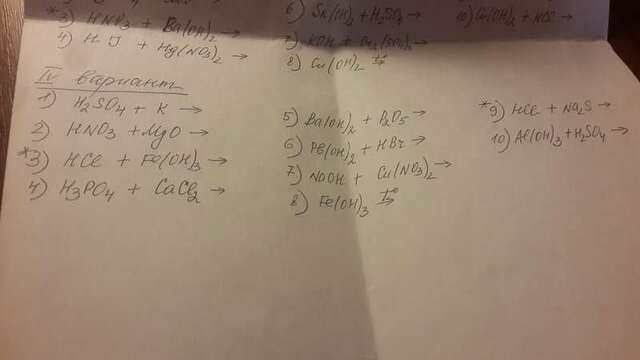 *3) HNO3 + Ba(OH)2 →
4) HJ + Hg(NO3)2 →
6) Sn(OH)2 + H2SO4 →
7) KOH +
8) Cu(OH)2 t° →
IV вариант
1) H2SO4 + K →
2) HNO3 + MgO →
*3) HCl + Fe(OH)3 →
4) H3PO4 + CaCl2 →
5) Ba(OH)2 + P2O5 →
6) Pb(OH)2 + HBr →
7) NaOH + Cu(NO3)2 →
8) Fe(OH)3 t° →
*9) HCl + Na2S →
10) Al(OH)3 + H2SO4 →